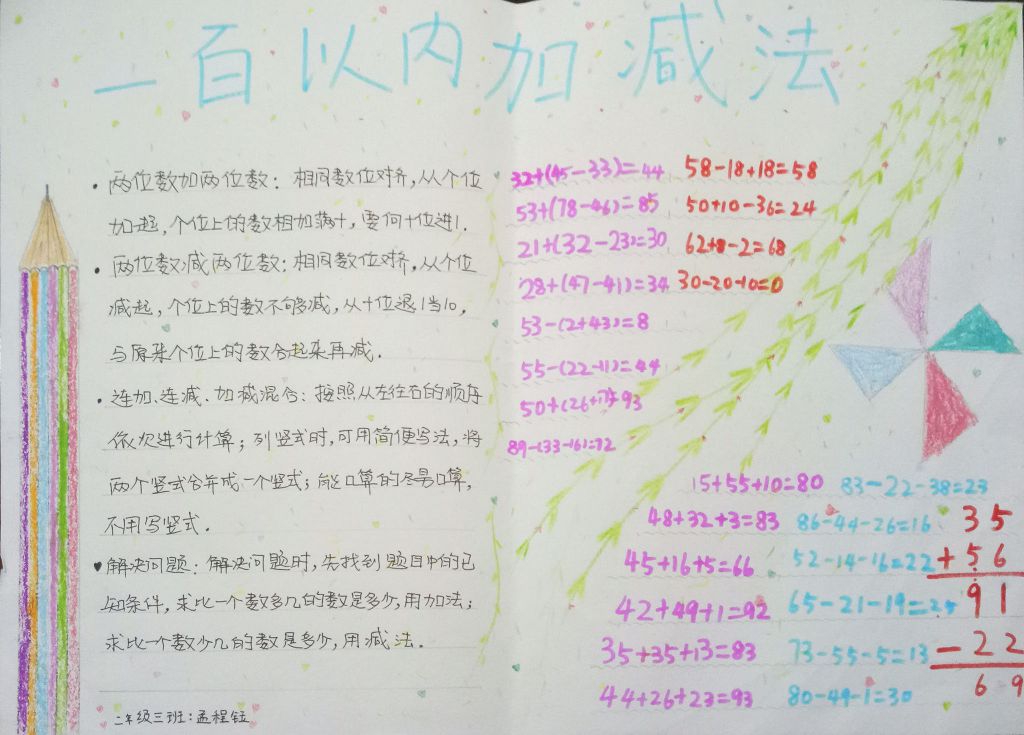 一百以内加减法
· 两位数加两位数：相同数位对齐，从个位
加起，个位上的数相加满十，要向十位进1.
· 两位数减两位数：相同数位对齐，从个位
减起，个位上的数不够减，从十位退1当10，
与原来个位上的数合起来再减.
· 连加.连减.加减混合：按照从左往右的顺序
依次进行计算；列竖式时，可用简便写法，将
两个竖式合并成一个竖式；能口算的尽量口算，
不用写竖式.
♥解决问题：解决问题时，先找到题目中的已
知条件，求比一个数多几的数是多少，用加法；
求比一个数少几的数是多少，用减法.
二年级三班：孟程钰
32+(45-33)=44 58-18+18=58
53+(78-46)=85 50+10-36=24
21+(32-23)=30 62+8-2=68
28+(47-41)=34 30-20-10=0
53-(2+43)=8
55-(22-11)=44
50+(26+17)=93
89-(33-16)=72
15+55+10=80 83-22-38=23
48+32+3=83 86-44-26=16
45+16+5=66 52-14-16=22
42+49+1=92 65-21-19=25
35+35+13=83 73-55-5=13
44+26+23=93 80-49-1=30
35
+56
91
-22
69